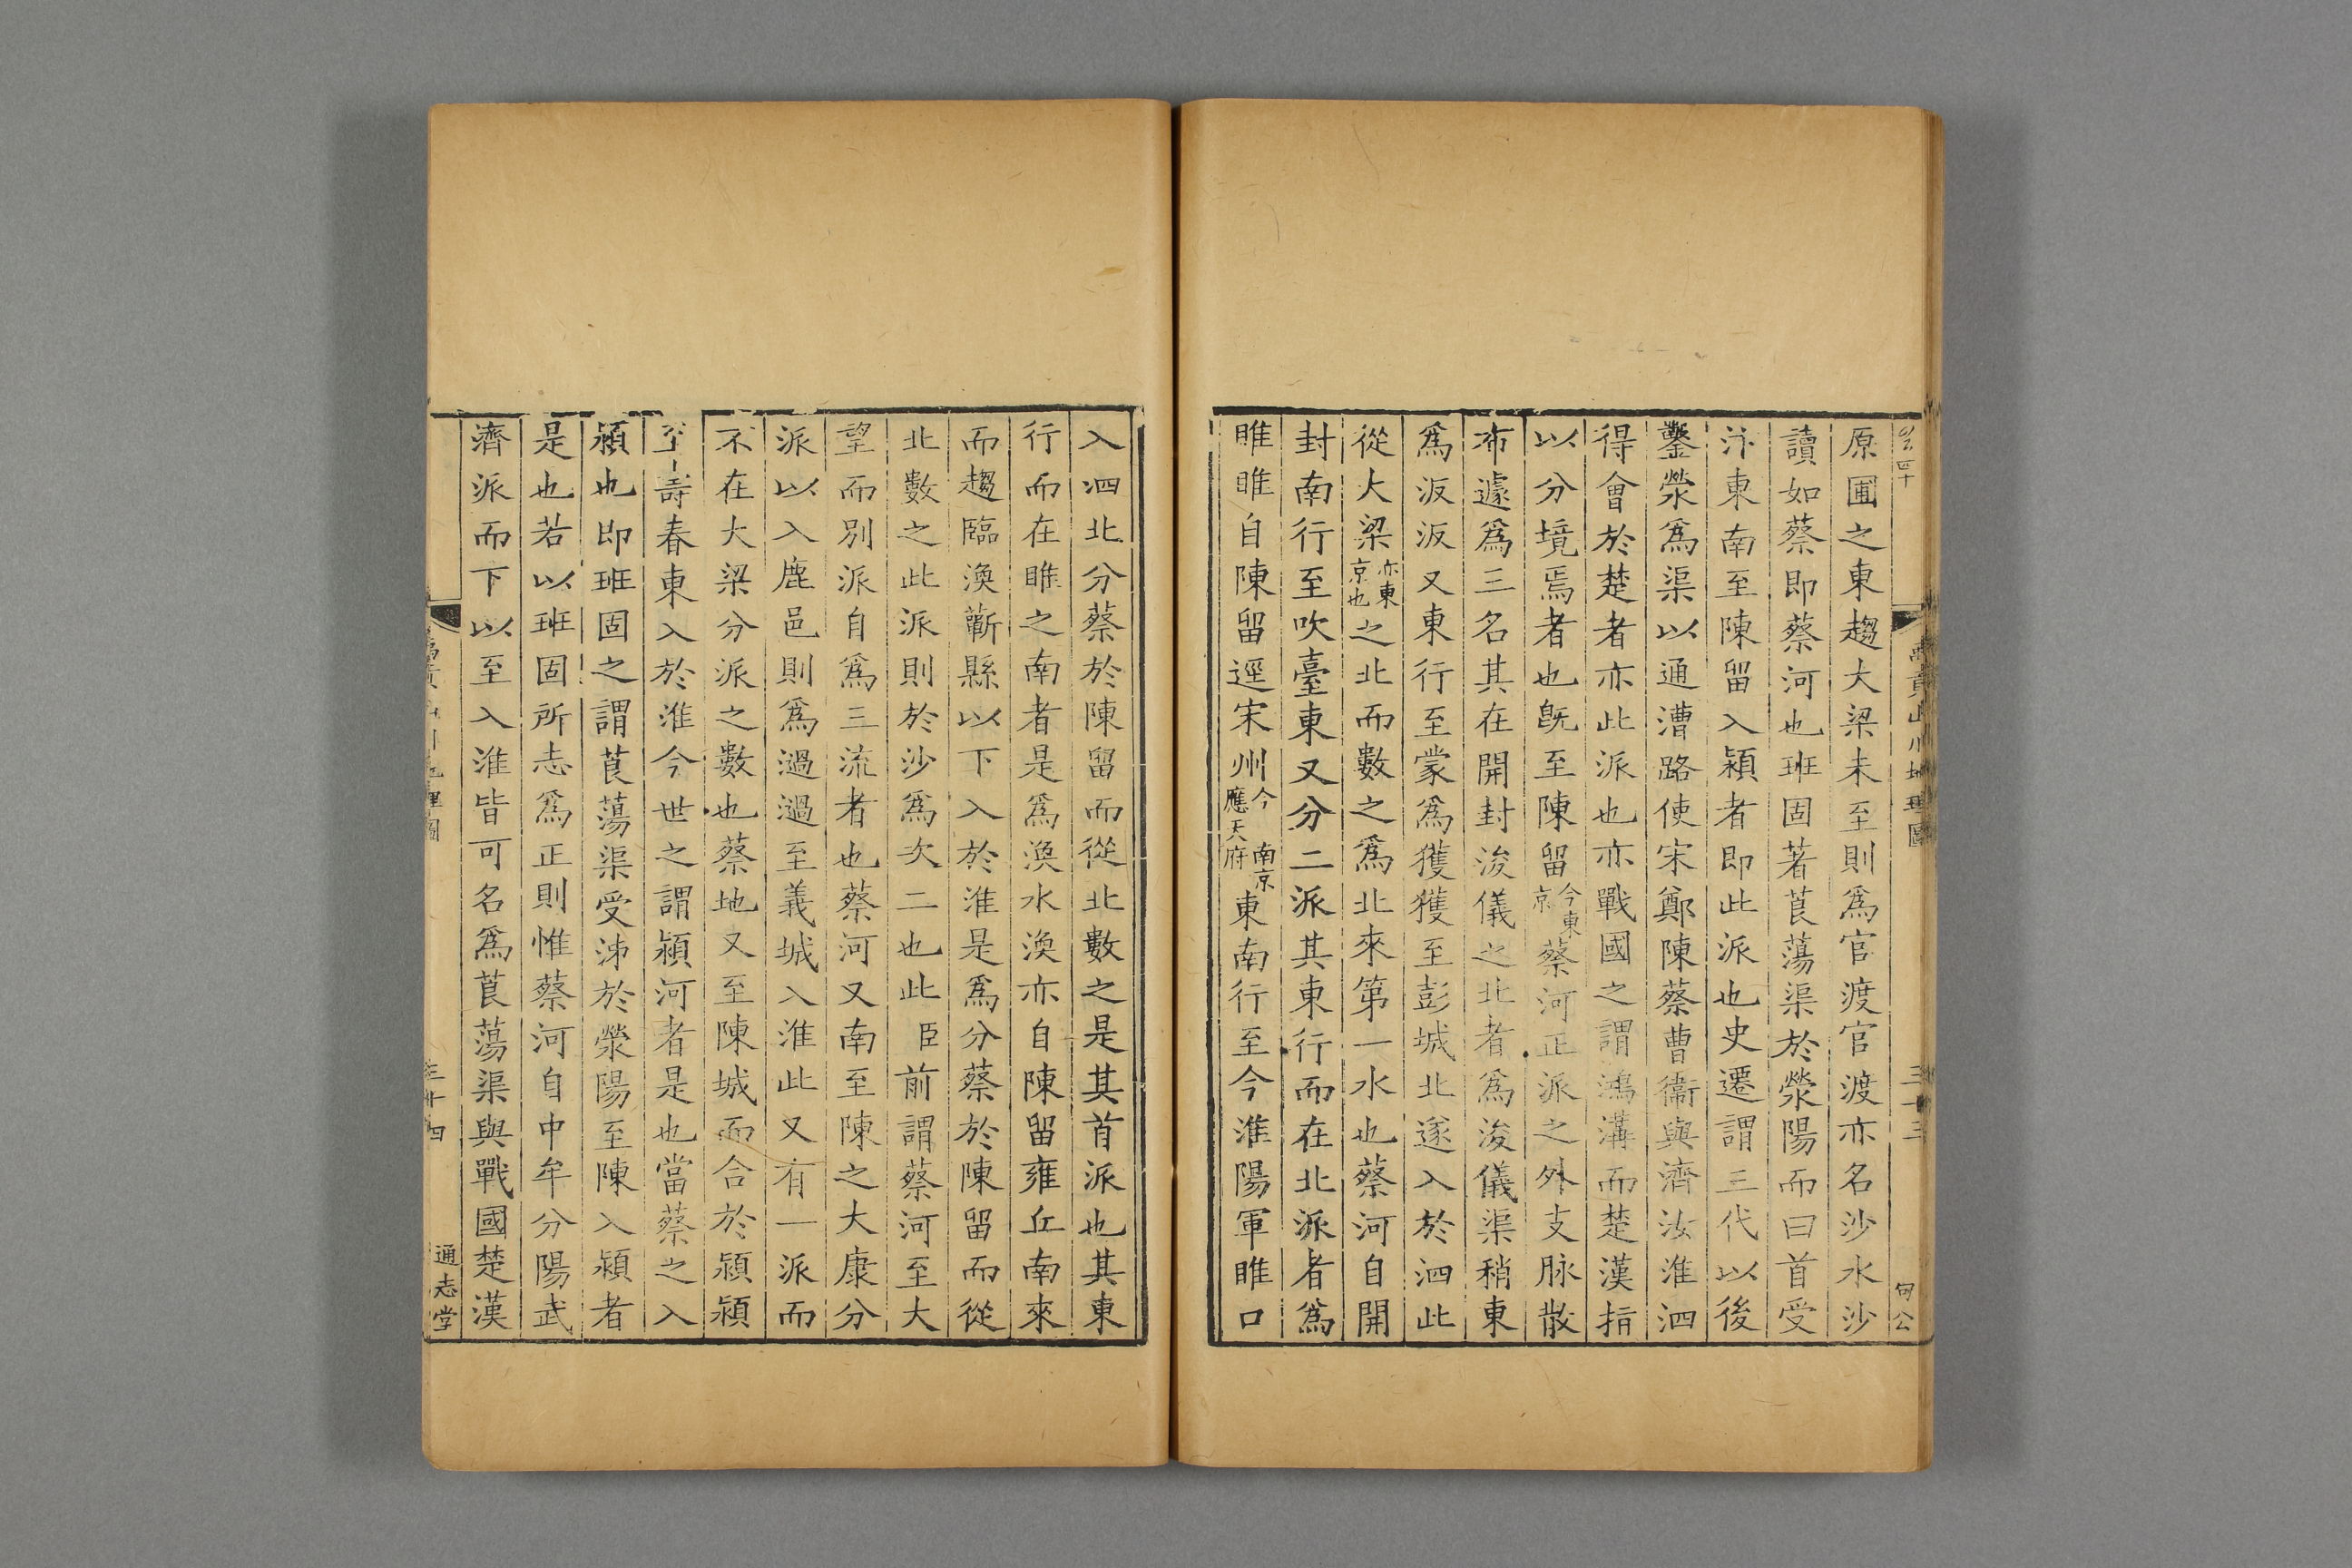 原圃之東趨大梁未至則爲官渡官渡亦名沙水沙
讀如蔡即蔡河也班固著莨蕩渠於滎陽而曰首受
汴東南至陳留入潁者即此派也史遷謂三代以後
鑿滎爲渠以通漕路使宋鄭陳蔡曹衞與濟汝淮泗
得會於楚者亦此派也亦戰國之謂鴻溝而楚漢指
以分境焉者也旣至陳留今東京蔡河正派之外支脉散
布遽爲三名其在開封浚儀之北者爲浚儀渠稍東
爲汳汳又東行至蒙爲獲獲至彭城北遂入於泗此
從大梁亦東京也之北而數之爲北來第一水也蔡河自開
封南行至吹臺東又分二派其東行而在北派者爲
睢睢自陳留逕宋州今南京應天府東南行至今淮陽軍睢口
入泗北分蔡於陳留而從北數之是其首派也其東
行而在睢之南者是爲渙水渙亦自陳留雍丘南來
而趨臨渙蘄縣以下入於淮是爲分蔡於陳留而從
北數之此派則於沙爲次二也此臣前謂蔡河至大
望而別派自爲三流者也蔡河又南至陳之大康分
派以入鹿邑則爲過過至義城入淮此又有一派而
不在大梁分派之數也蔡地又至陳城而合於潁潁
至壽春東入於淮今世之謂潁河者是也當蔡之入
潁也即班固之謂莨蕩渠受泲於滎陽至陳入潁者
是也若以班固所志爲正則惟蔡河自中牟分陽武
濟派而下以至入淮皆可名爲莨蕩渠與戰國楚漢
三十四
通志堂